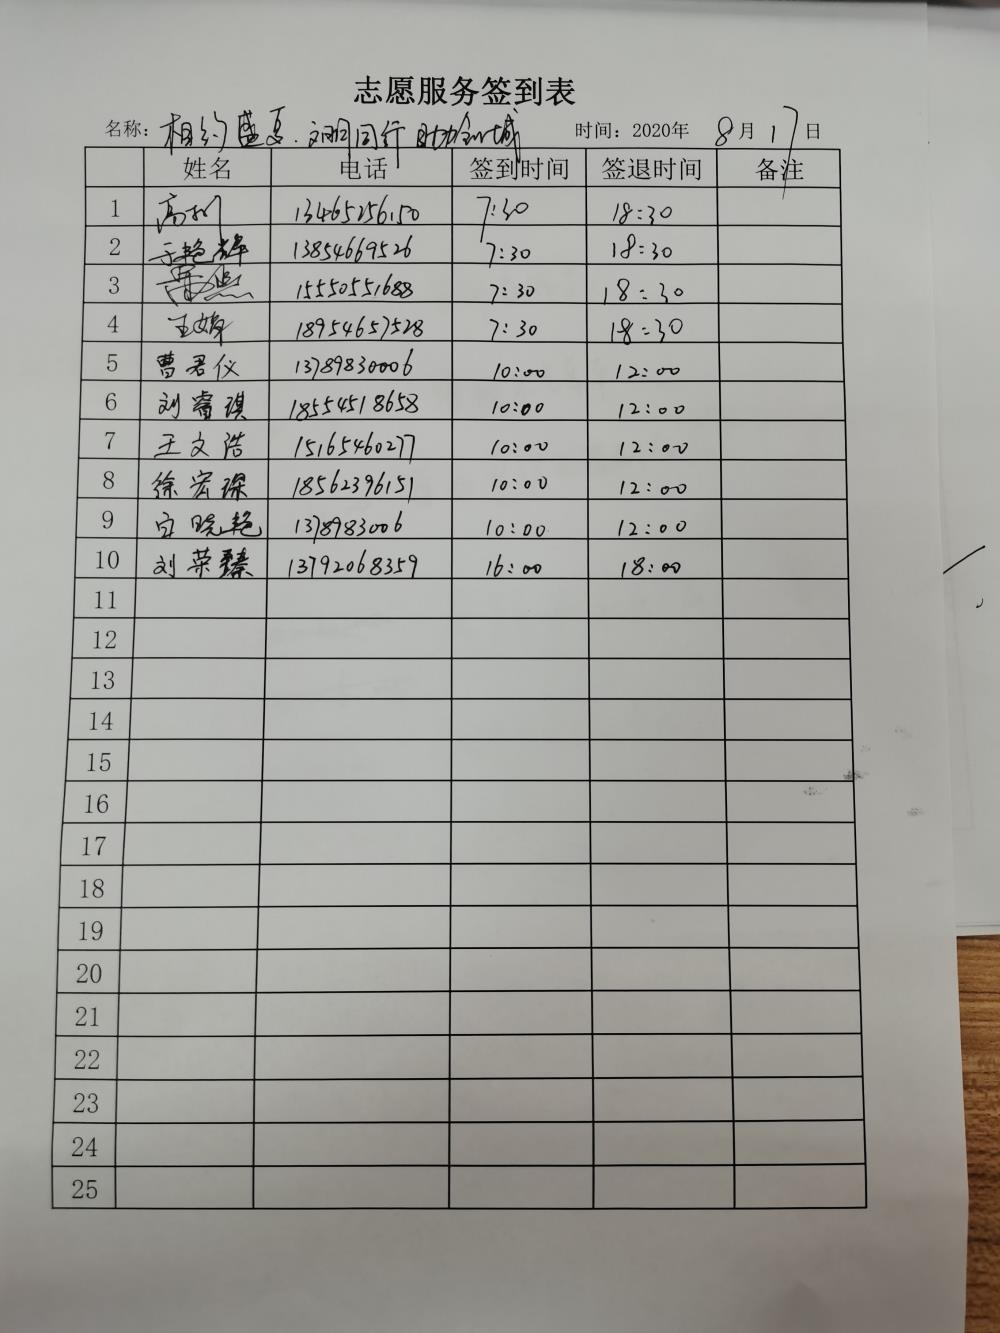 志愿服务签到表
名称: 相约盛夏·文明同行 助力创城 时间: 2020年 8月17日
姓名 电话 签到时间 签退时间 备注
1 高 13465256150 7:30 18:30
2 于艳辉 13854669526 7:30 18:30
3 15550551688 7:30 18:30
4 王婷 18954657528 7:30 18:30
5 曹君仪 13789830006 10:00 12:00
6 刘睿琪 18554518658 10:00 12:00
7 王文浩 15165460277 10:00 12:00
8 徐宏琛 18562396151 10:00 12:00
9 宋晓艳 1378983006 10:00 12:00
10 刘荣臻 13792068359 16:00 18:00
11
12
13
14
15
16
17
18
19
20
21
22
23
24
25